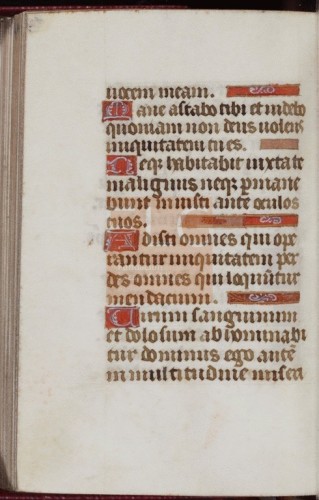 uocem meam.
Mane astabo tibi et uidebo
quoniam non deus uolens
iniquitatem tu es.
Neqꝫ habitabit iuxta te
malignus neqꝫ ꝑmane
bunt iniusti ante oculos
tuos.
Odisti omnes qui ope
rantur iniquitatem per
des omnes qui loquūtur
mendacium.
Uirum sanguinum
et dolosum abhominabi
tur dominus ego autē
in multitudine miseri